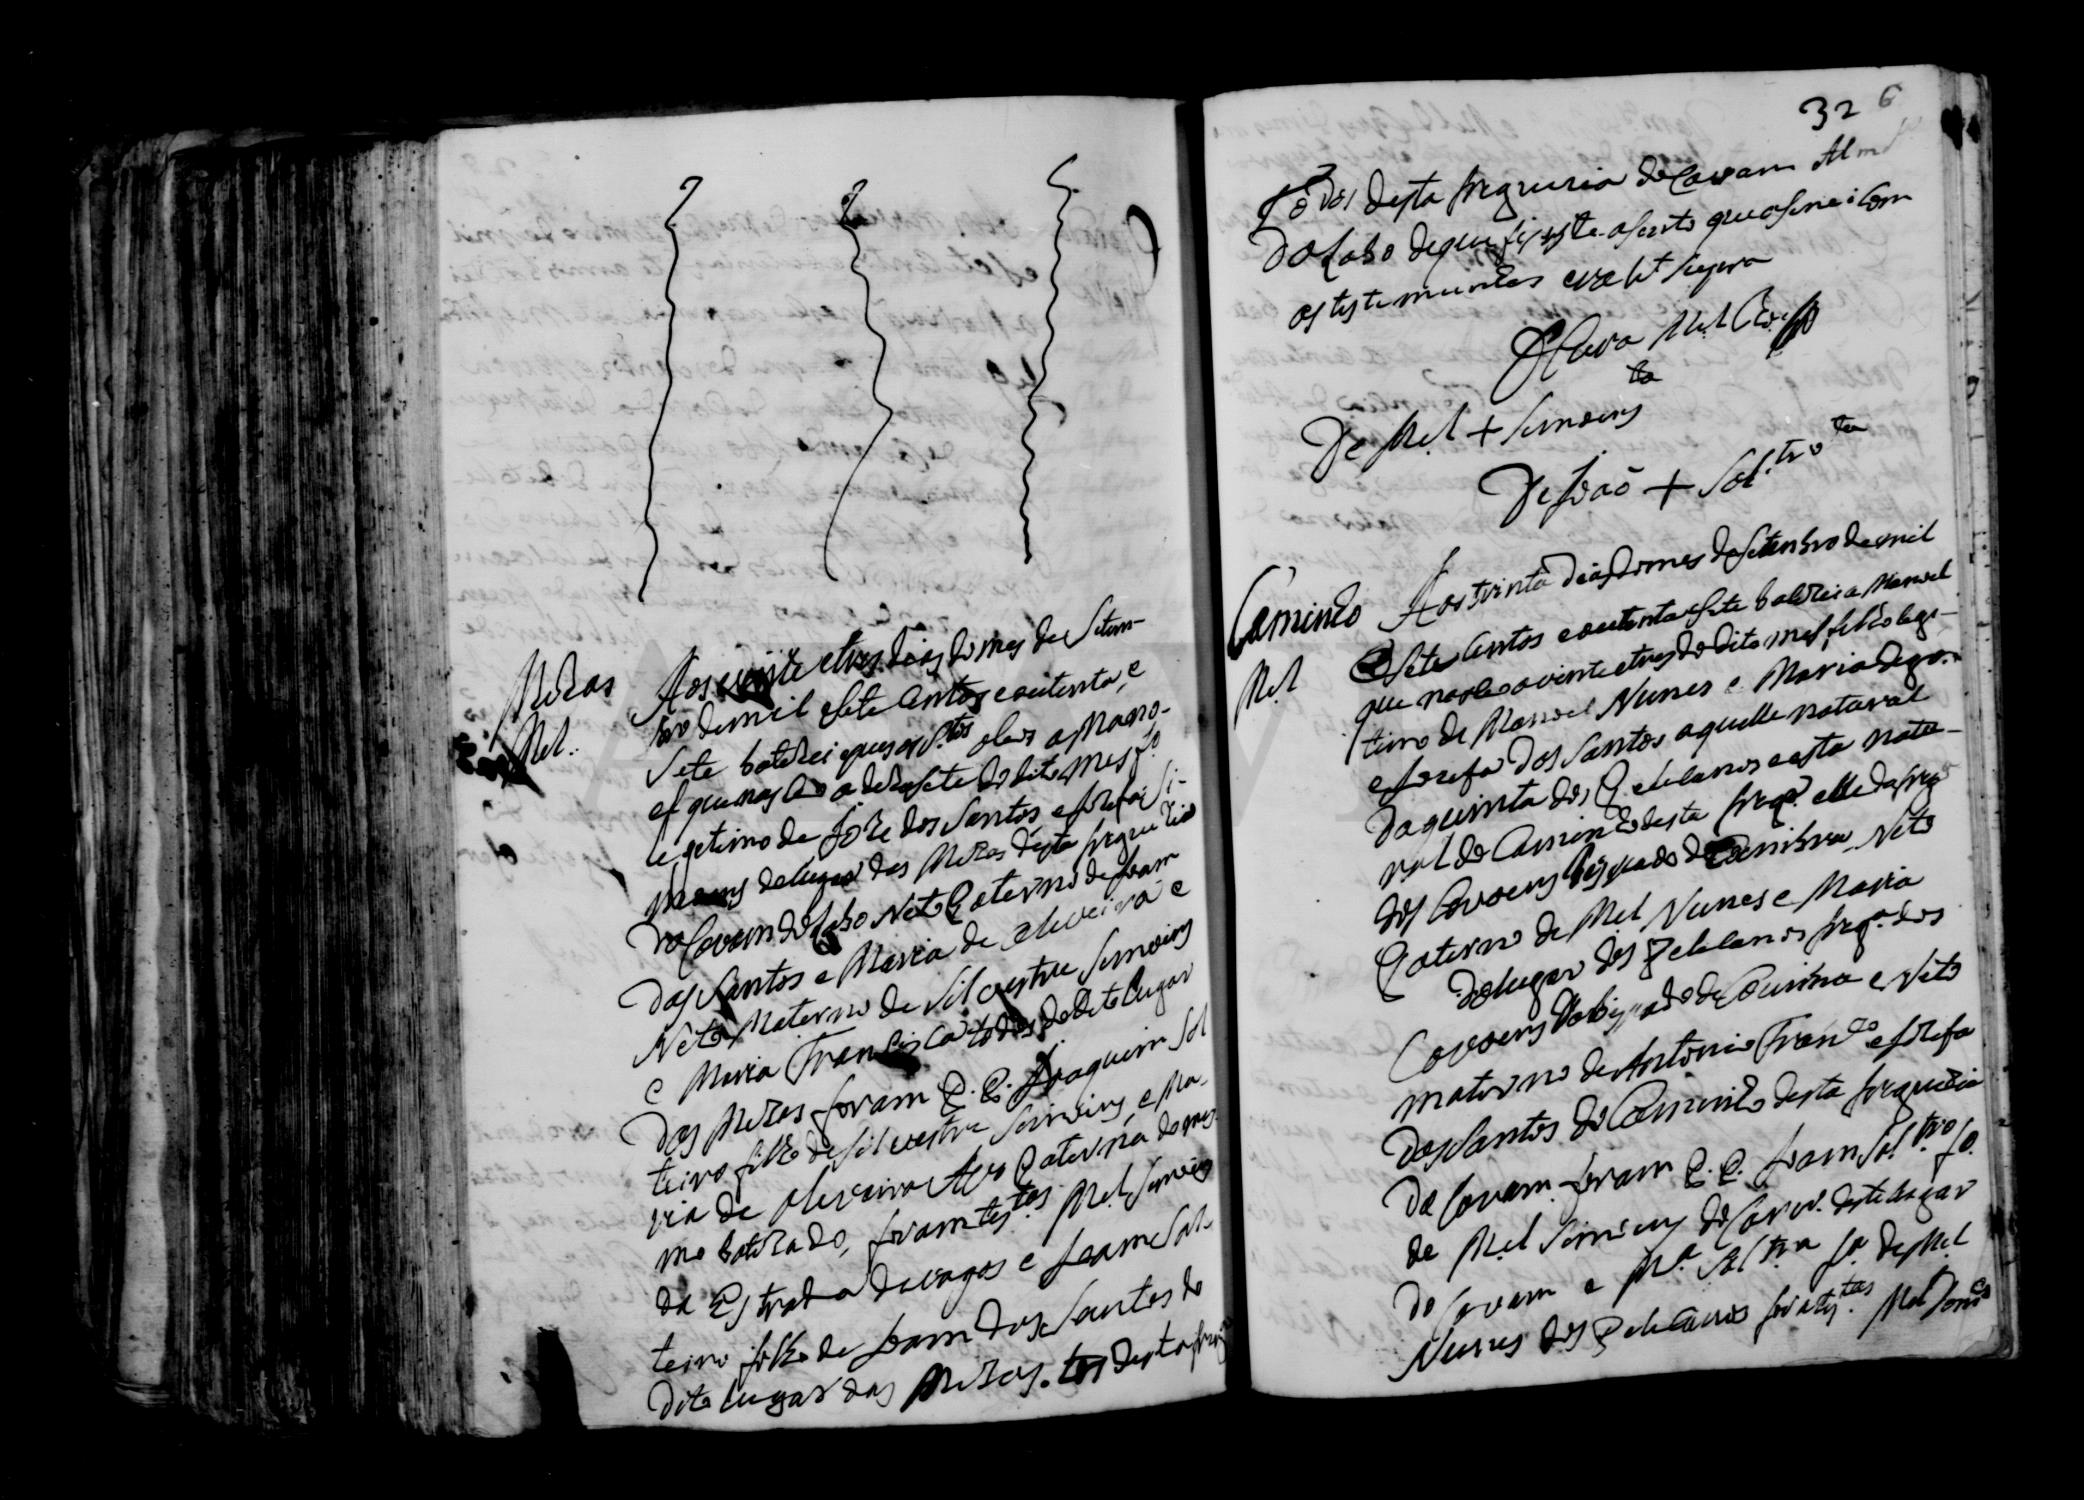 Mezas
Mel.
Aos vinte e tres dias do mes de Setem-
bro de mil e sete centos e outenta, e
Sete batizei e pus os S.tos oleos a Mano-
el que nasceo a dezasete do dito mes f.o
legetimo de Joze dos Santos e Jozefa Si-
moens do lugar das Mezas desta freguezia
do Covam do Lobo Neto Paterno de Joam
dos Santos e Maria de oliveira e
Neto Materno de Silvestre Simoins
e Maria Francisca todos do dito Lugar
das Mezas foram P. P. Joaquim Sol
teiro filho de Silvestre Simoins, e Ma-
ria de oliveira Avo Paterna do mes-
mo batizado, foram tes.tas Mel Simoins
da Estrada de vagos e Joam Sol-
teiro filho de Joam dos Santos do
dito lugar das Mezas. tos desta freg.a
326
Todos desta freguezia do Covam
do Lobo de que fiz este asento que asinei com
as testemunhas era ut supra
O Cura Mel
De Mel + Simoens
De João + Sol.tro t.a
Caminho
Mel
Aos trinta dias do mes de Setembro de mil
e Sete Centos e outenta e Sete batizei a Manoel
que nasceo a vinte e tres do dito mes filho lege-
timo de Manoel Nunes e Maria digo
e Jozefa dos Santos aquelle natural
da quinta dos e esta natu-
ral do Caminho desta freg.a elle da freg.a
dos Covoens Bispado de Coimbra Neto
Paterno de Mel Nunes e Maria
do lugar dos freg.a dos
Covoens do bispado de Coimbra e Neto
materno de Antonio Fran.co e Jozefa
dos Santos do Caminho desta freguezia
do Covam foram P. P. Joam Sol.tro f.o
de Mel Simoens do deste lugar
do Covam e M.a Sol.tra f.a de Mel
Nunes dos foram tes.tas Mel